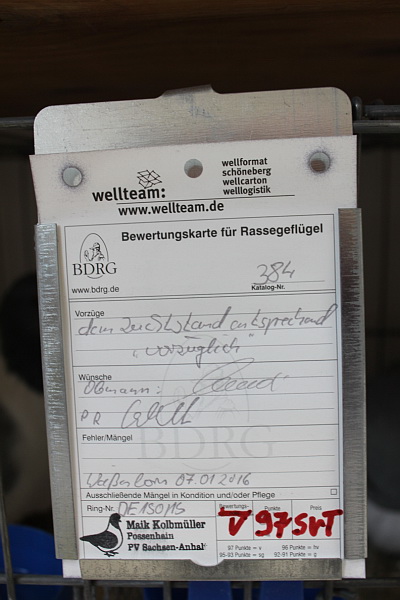 wellteam:
wellformat
schöneberg
wellcarton
welllogistik
www.wellteam.de
BDRG
www.bdrg.de
Bewertungskarte für Rassegeflügel
384
Katalog-Nr.
Vorzüge
dem Zuchtstand entsprechend
"vorzüglich"
Wünsche
Obmann:
PR
Fehler/Mängel
BDRG
07.01.2016
Ausschließende Mängel in Kondition und/oder Pflege
Ring-Nr.
Maik Kolbmüller
Possenhain
PV Sachsen-Anhalt
Bewertungs-
Punkte
Preis
V 97 SVT
97 Punkte = v
96 Punkte = hv
93-95 Punkte = sg
92-91 Punkte = g